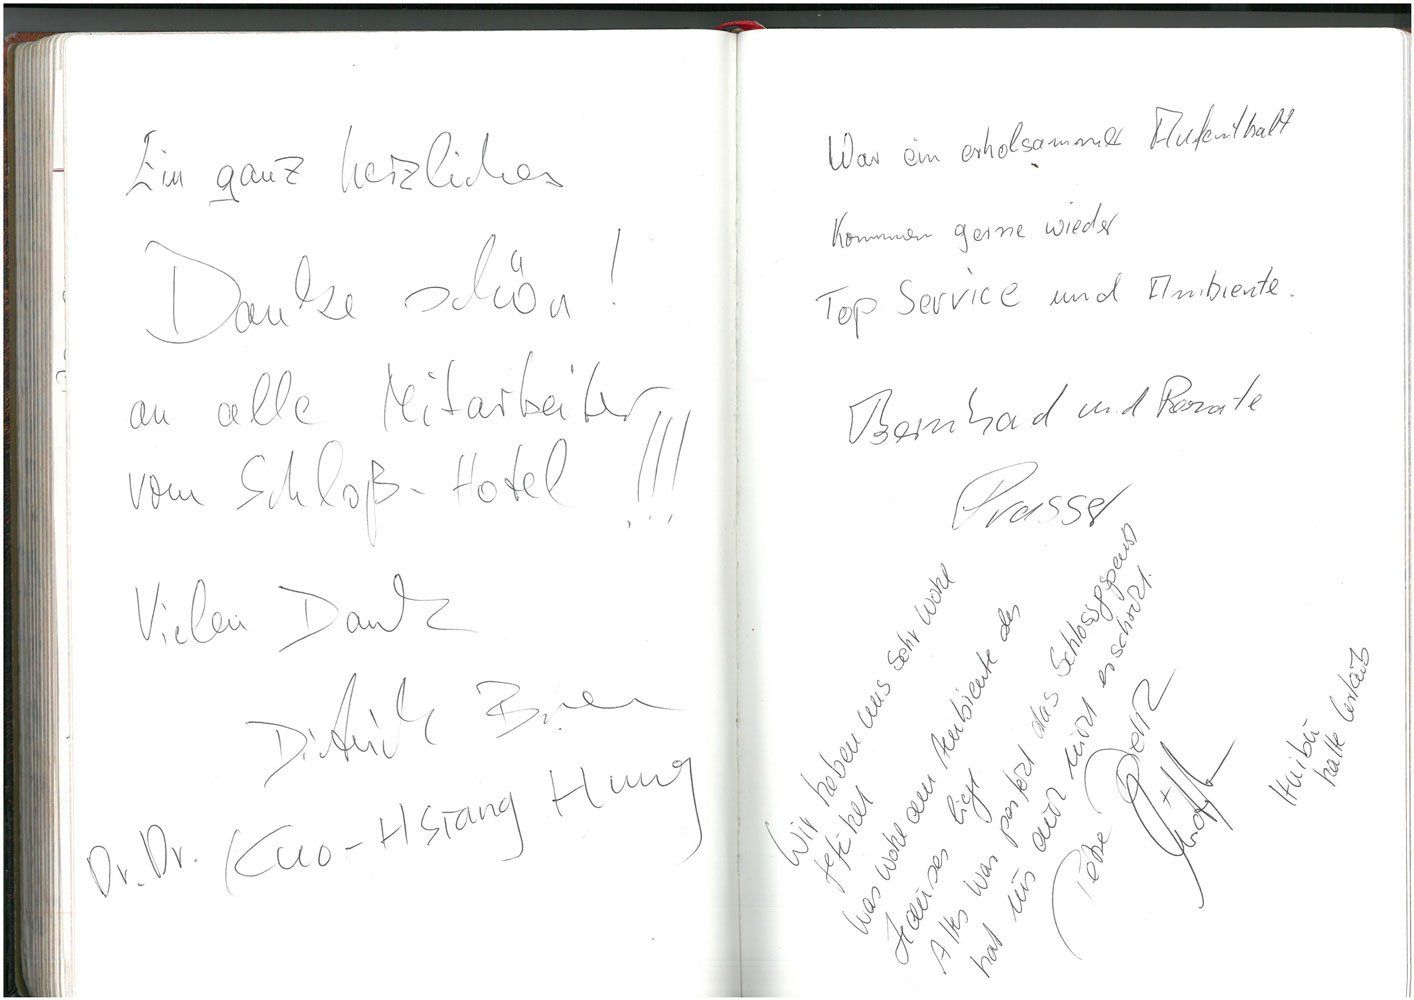 Ein ganz herzliches
Danke schön!
an alle Mitarbeiter
vom Schloß-Hotel !!!
Vielen Dank
Dietrich
Dr. Dr. Kuo-Hsiang Hung
War ein erholsammer Aufenthalt
Kommen gerne wieder
Top Service und Ambiente.
Bernhad und Renate
Prasser
Wir haben uns sehr wohl
gefühlt
was wohl am Ambiente des
Hauses liegt
Alles war perfekt das Schlossgespenst
hat uns auch nicht erschreckt.
Petra